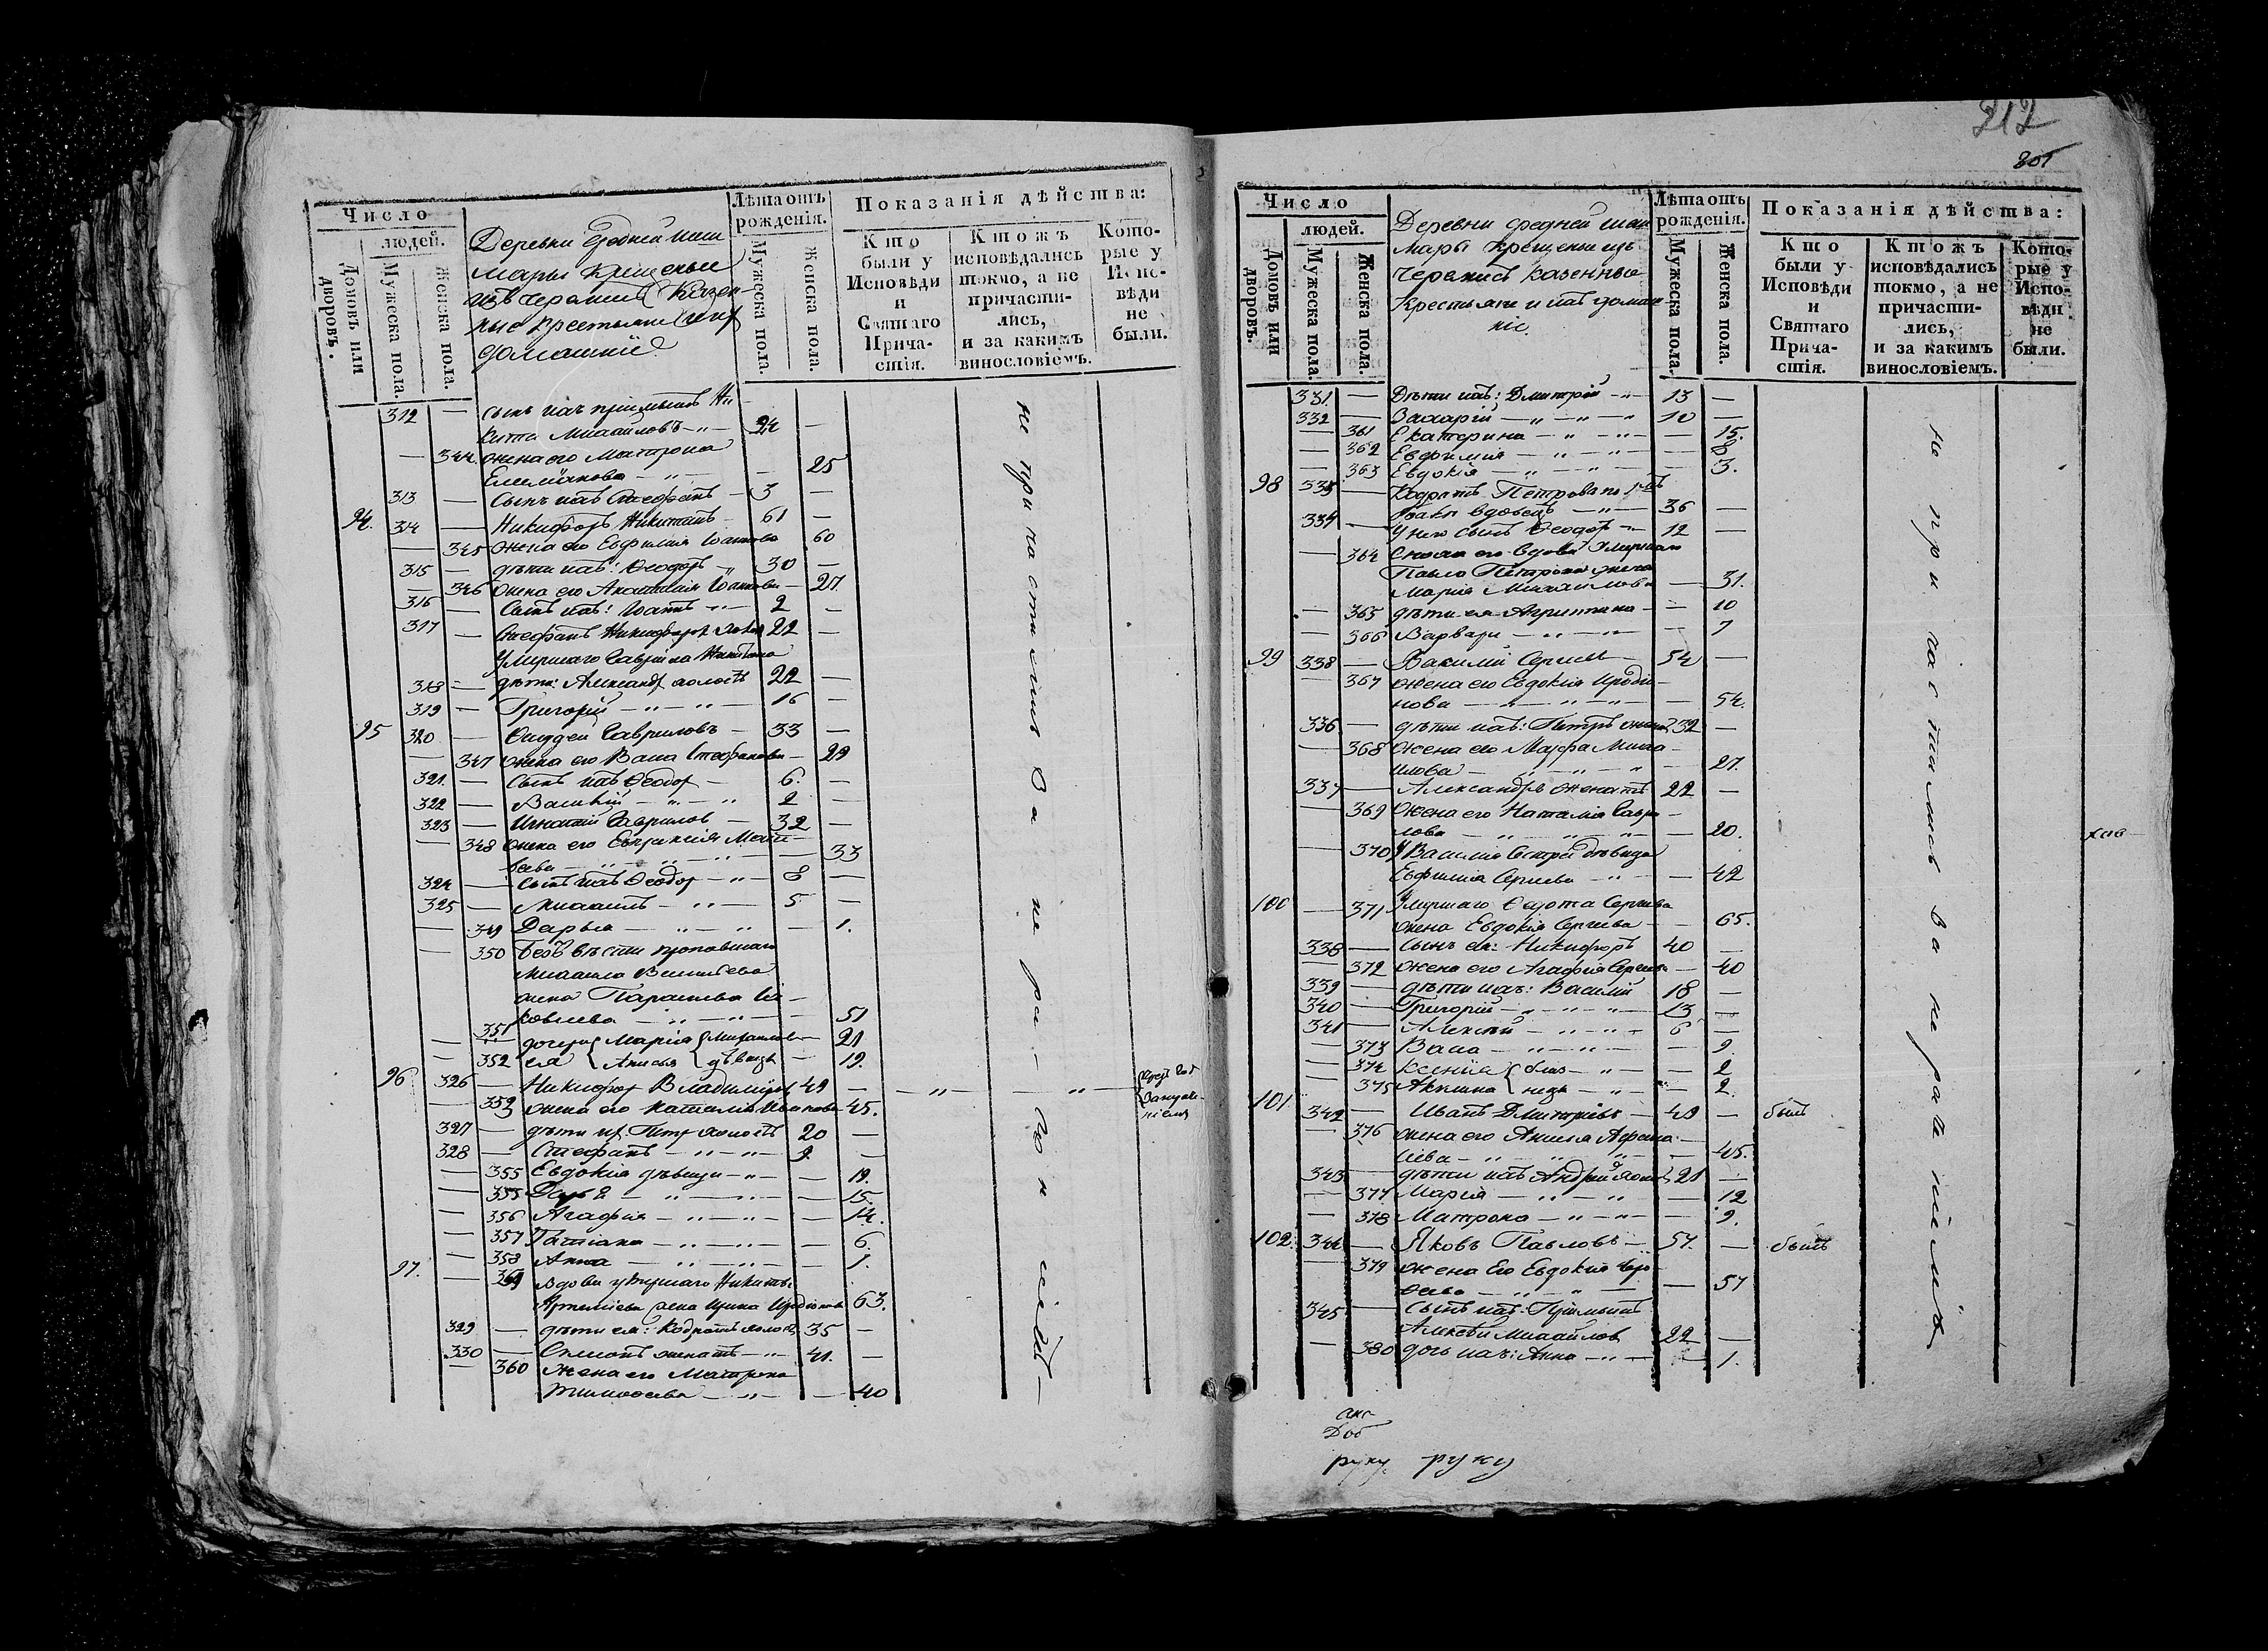 Число
людей.
Домовъ или дворовъ.
Мужеска пола.
Женска пола.
Деревни Средней Шаш
мары крещеные
изъ черемисъ Казен-
ные крестьяне и их
домашніе
Лѣта отъ рожденія.
Мужеска пола.
Женска пола.
Показанія дѣйства:
Кто были у Исповѣди и Святаго Причастія.
Ктожъ исповѣдались токмо, а не причастились, и за какимъ винословіемъ.
Которые у Исповѣди не были.
312 — сынъ ихъ пріимышъ Ни-
кита Михайловъ 24 —
— 344 жена его Матрона
— 25
313 — Сынъ ихъ Стефанъ — 3 —
94. 314 — Никифоръ Никитинъ — 61 —
— 345 жена его Евфимія Іоаннова 60
315 — дѣти ихъ: Ѳеодоръ 30 —
— 346 жена его Анастасія Іоаннова — 27.
316 — Сынъ ихъ: Іоаннъ 2 —
317 — Стефанъ Никифоровъ 22 —
Умершаго Гавріила Никитина
318 — дѣти: Александръ холостъ 22 —
319 — Григорій — 16 —
95 320 — Гавриловъ — 33 —
— 347 жена его Васса Стефанова — 29
321. — Сынъ ихъ Ѳеодоръ — 6. —
322 — Василій — 2 —
323 — Игнатій Гавриловъ — 32 —
— 348 жена его Евпраксія Матв-
ѣева — 33
324 — Сынъ ихъ Ѳеодоръ — 8 —
325 — Михаилъ — 5 —
— 349 Дарья — 1.
350 Безъ вѣсти пропавшаго
Михаила Васильева
жена Параскева Іа-
ковлева — 51
— 351 дочери Марія Михайловы 21
— 352 ея Анисья дѣвицы — 19.
96 326 — Никифоръ Владиміровъ 49 —
— 353 жена его Наталья Иванова 45.
327 — дѣти их: Петръ холостъ 20 —
328 — Стефанъ — 9. —
— 355 Евдокія дѣвица — 19.
— 355 Дарья — 15.
— 356 Агафія — 14.
— 357 Татіана — 6.
— 358 Анна — 1.
97. — 359 вдова умершаго Никиты
Артеміева жена Ирина Иродіонова 63.
329 — дѣти ея: Кодратъ холостъ 35 —
330 — Симеонъ женатъ — 41. —
— 360 Жена его Матрона
Тимоѳеева — 40
не причастились за нераченіемъ
212
305
Число
людей.
Домовъ или дворовъ.
Мужеска пола.
Женска пола.
Деревни средней шаш
мары крещены изъ
черемисъ казенные
Крестьяне и ихъ домаш
ніе.
Лѣта отъ рожденія.
Мужеска пола.
Женска пола.
Показанія дѣйства:
Кто были у Исповѣди и Святаго Причастія.
Ктожъ исповѣдались токмо, а не причастились, и за какимъ винословіемъ.
Которые у Исповѣди не были.
331. — Дѣти ихъ: Димитрій 13 —
332 — Захарій — 10 —
— 361 Екатерина — 15.
— 362 Евфимія — 8
— 363 Евдокія — 3.
98 — Кодратъ Петровъ
вдовецъ — 36 —
334 — У него сынъ Ѳеодоръ 12 —
— 364 Сноха его вдова Умершаго
Павла Петрова жена
Марія Михайлова — 31.
— 365 дѣти ея Агриппина — 10
— 366 Варвара — 7
99 338 — Василій Сергіевъ 54 —
— 367 жена его Евдокія Иродіо-
нова — 54.
336 — дѣти ихъ: Петръ женатъ 32 —
— 368 жена его Марфа Миха-
илова — 27.
337 — Александръ женатъ 22 —
369 жена его Наталія Гаври-
лова — 20.
370 У Василія сестра дѣвица
Евфимія Сергіева — 42
100 — 371 Умершаго Ѳедота Сергѣева
жена Евдокія Сергіева — 65.
338 — Сынъ ея: Никифоръ 40 —
— 372 жена его Агафія Сергіева — 40
339 — дѣти ихъ: Василій 18 —
340 — Григорій — 13 —
341 — Алексѣй — 6 —
— 373 Васса — 9.
— 374 Ксенія близ- — 2
— 375 Акилина нецы — 2.
101 342 — Иванъ Дмитріевъ — 49 — былъ
— 376 жена его Анисья Афана-
сіева — 45.
343 — дѣти ихъ Андрей холостъ 21 —
— 377 Марія — 12
— 378 Матрона — 9.
102. 344 — Яковъ Павловъ — 57. — былъ
— 379 жена Его Евдокія
— 57
345 — Сынъ ихъ: Пріимышъ
Алексѣй Михайлов 22 —
— 380 дочь ихъ: Анна — 1.
не причастились за нераченіемъ
руку